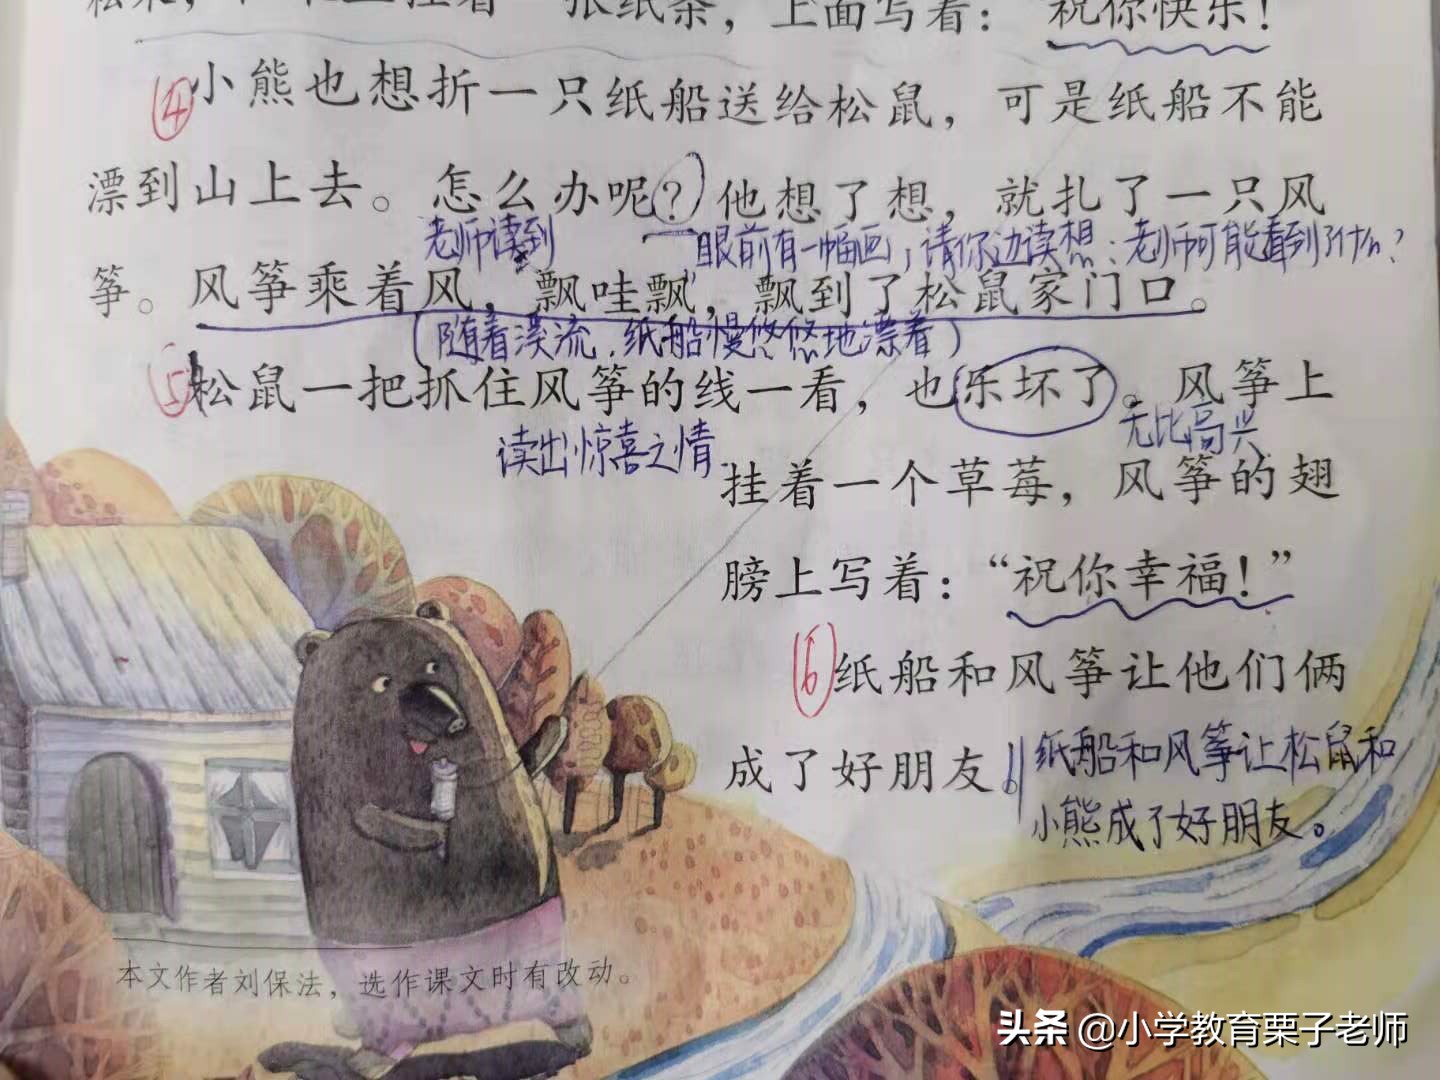 张纸条，上面写着：“祝你快乐！
④小熊也想折一只纸船送给松鼠，可是纸船不能
漂到山上去。怎么办呢？他想了想，就扎了一只风
老师读到 眼前有一幅画，请你边读想：老师可能看到了什么？
筝。风筝乘着风，飘哇飘，飘到了松鼠家门口。
（随着溪流，纸船慢悠悠地漂着）
⑤松鼠一把抓住风筝的线一看，也乐坏了。风筝上
读出惊喜之情 无比高兴
挂着一个草莓，风筝的翅
膀上写着：“祝你幸福！”
⑥纸船和风筝让他们俩
成了好朋友。
纸船和风筝让松鼠和
小熊成了好朋友。
本文作者刘保法，选作课文时有改动。
头条@小学教育栗子老师